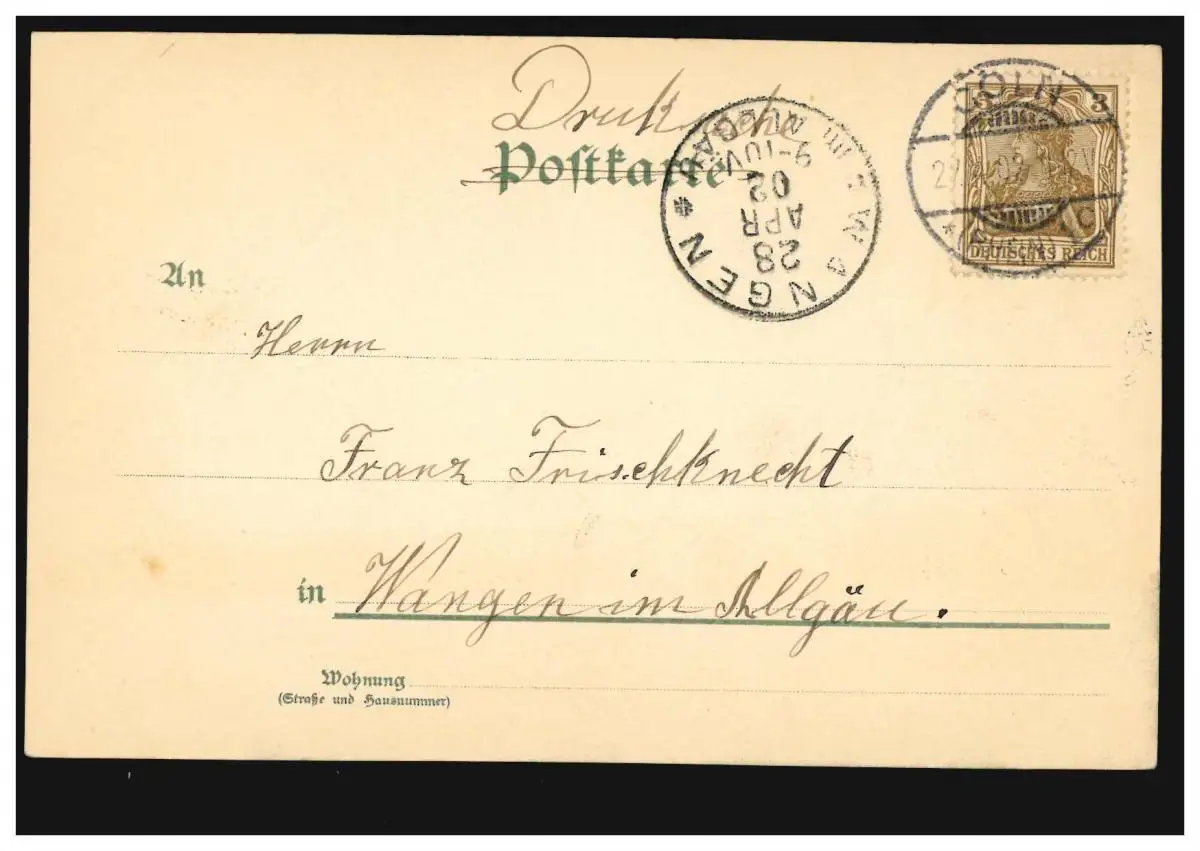 Drucksache
Postkarte
CÖLN
3
DEUTSCHES REICH
WANGEN im
28
APR
02
9-10V
An
Herrn
Franz Frischknecht
in Wangen im Allgäu.
Wohnung
(Straße und Hausnummer)